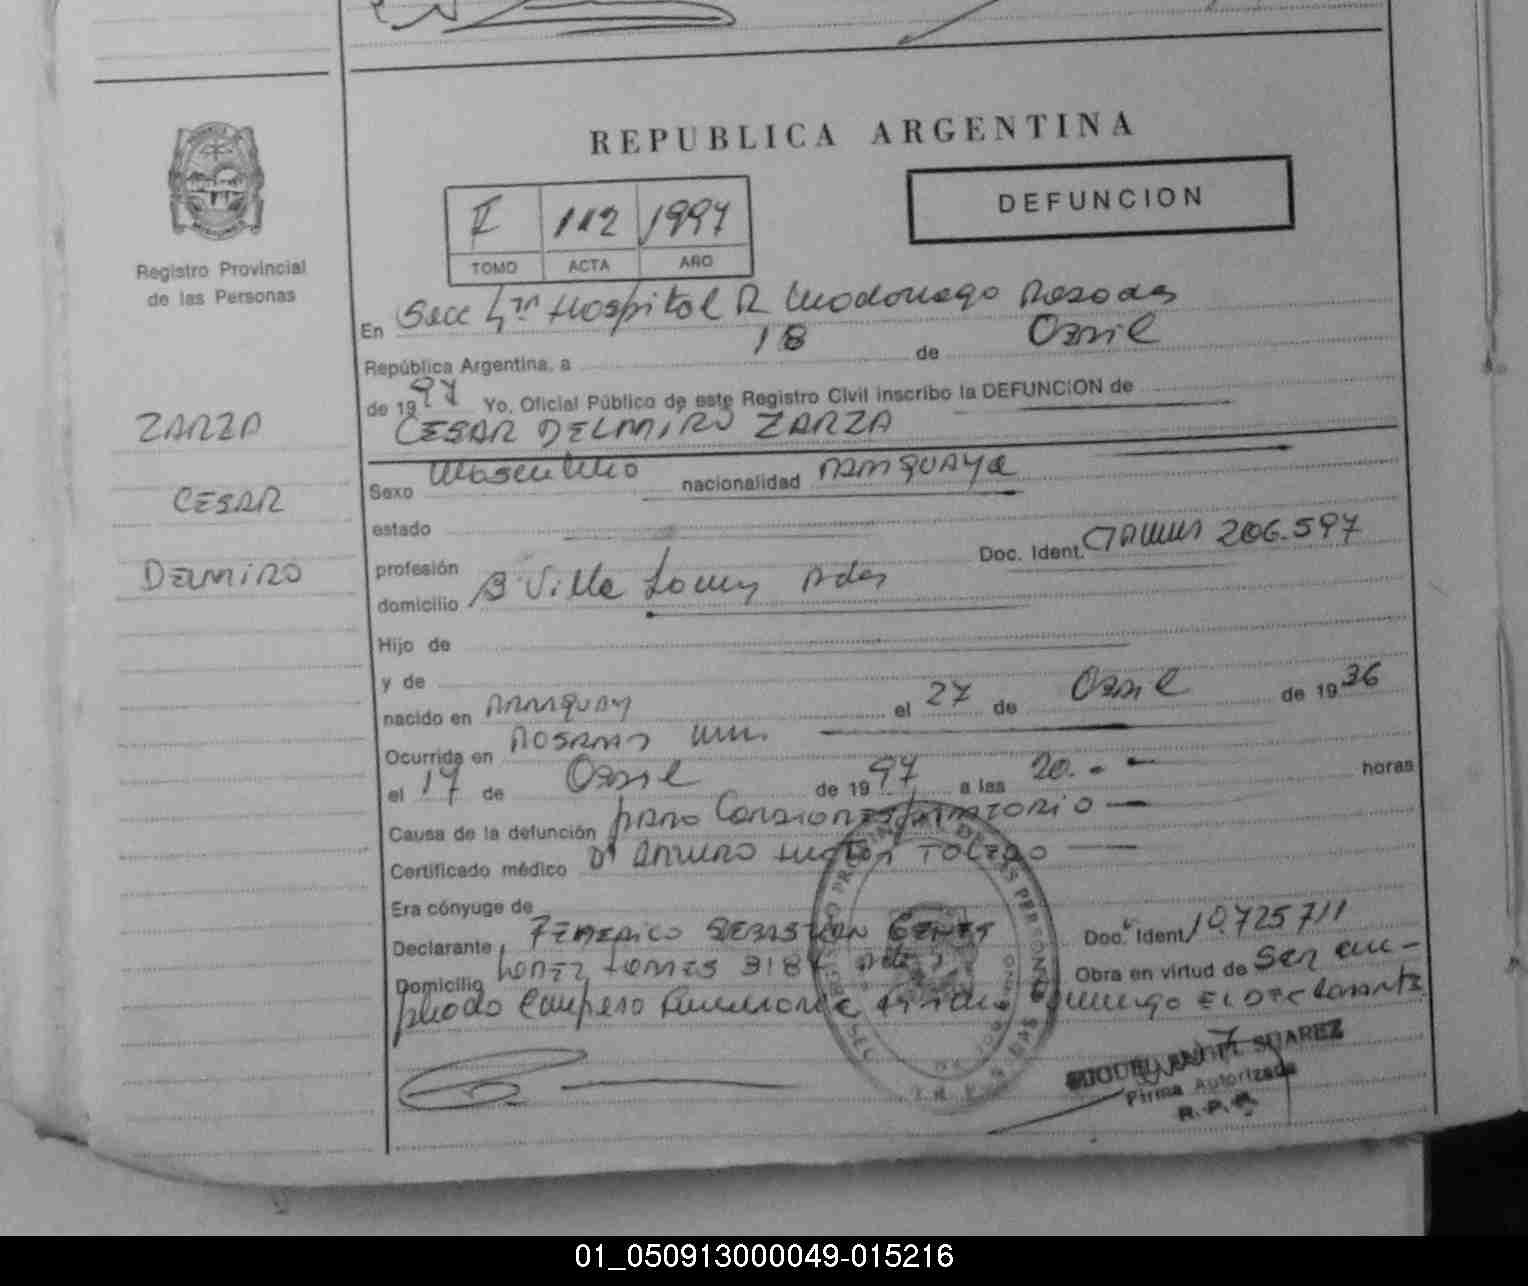 REPUBLICA ARGENTINA
DEFUNCION
I 112 1997
TOMO ACTA AÑO
Registro Provincial
de las Personas
ZARZA
CESAR
DELMIRO
En Secc 4ta Hospital R Madariaga Posadas
República Argentina, a 18 de Abril
de 1997 Yo, Oficial Público de este Registro Civil inscribo la DEFUNCION de
CESAR DELMIRO ZARZA
Sexo Masculino nacionalidad PARAGUAYA
estado
profesión Doc. Ident. 206.597
domicilio B Villa Pdas
Hijo de
y de
nacido en PARAGUAY el 27 de Abril de 1936
Ocurrida en POSADAS
el 17 de Abril de 1997 a las 20.- horas
Causa de la defunción paro CARDIORESPIRATORIO
Certificado médico Dr ARTURO TOLEDO
Era cónyuge de
Declarante FEDERICO SEBASTIAN Doc. Ident 10.725711
Domicilio LOPEZ TORRES Obra en virtud de Ser em-
pleado Empresa El Declarante
SUAREZ
Firma Autorizada
R.P.P.
01_050913000049-015216